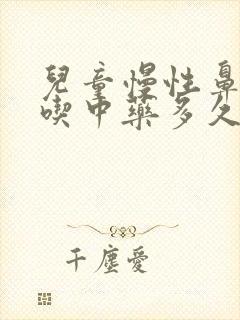 兒童慢性鼻
喫中藥多久
千塵愛